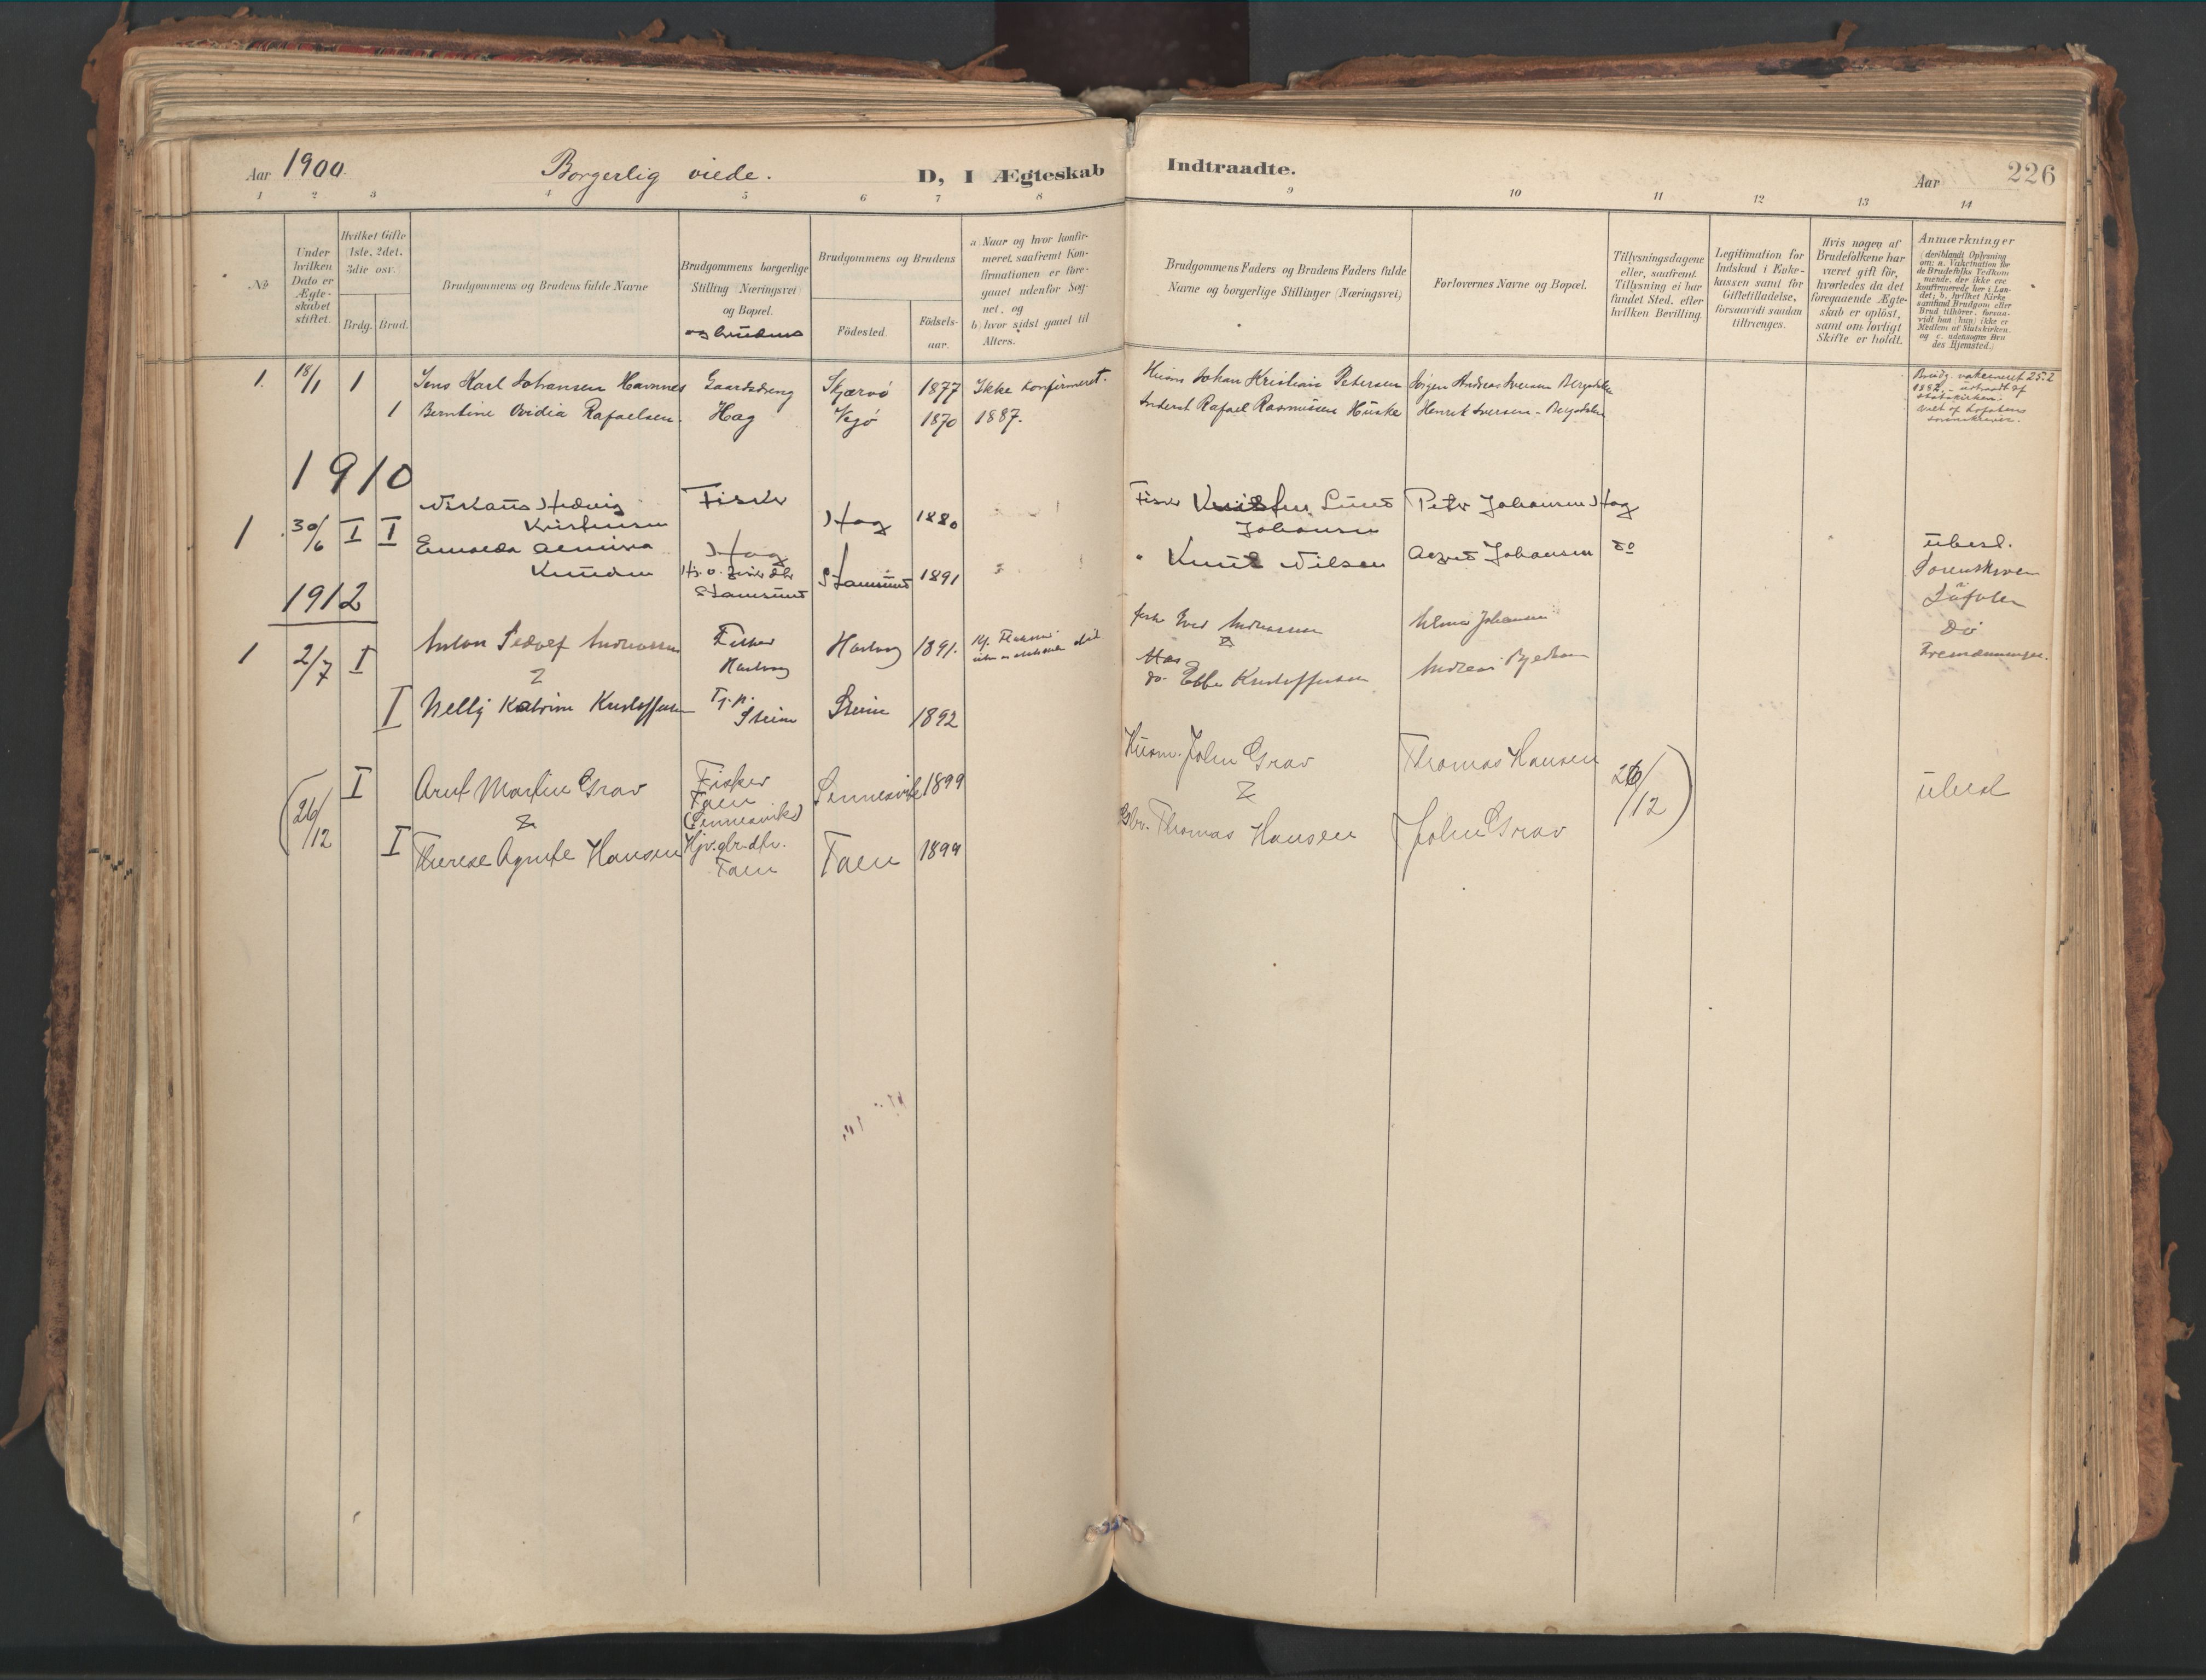 Aar 1900. Borgerlig viede. D, I Ægteskab Indtraadte. Aar 226
1 2 3 4 5 6 7 8 9 10 11 12 13 14
No
Under hvilken Dato er Ægte-skabet stiftet.
Hvilket Gifte (1ste, 2det, 3die osv.
Brdg. Brud.
Brudgommens og Brudens fulde Navne
Brudgommens borgerlige Stilling (Næringsvei) og Bopæl.
og brudens
Brudgommens og Brudens
Födested. Födsels-aar.
a) Naar og hvor konfir-
meret, saafremt Kon-
firmationen er fore-
gaaet udenfor Sog-
net, og
b) hvor sidst gaaet til
Alters.
Brudgommens Faders og Brudens Faders fulde
Navne og borgerlige Stillinger (Næringsvei)
Forlovernes Navne og Bopæl.
Tillysningsdagene
eller, saafremt
Tillysning ei har
fundet Sted, efter
hvilken Bevilling.
Legitimation for
Indskud i Enke-
kassen samt for
Giftetilladelse,
forsaavidt saadan
tiltrænges.
Hvis nogen af
Brudefolkene har
været gift för,
hvorledes da det
foregaaende Ægte-
skab er oplöst,
samt om lovligt
Skifte er holdt.
Anmærkninger
(deriblandt Oplysning
om: a. Vakcination for
de Brudefolks Vedkom
mende, der ikke ere
konfirmerede her i Lan-
det; b. hvilket Kirke
samfund Brudgom eller
Brud tilhörer, forsaa-
vidt han (hun) ikke er
Medlem af Statskirken.
og c. udensogns Bru
des Hjemsted.)
1. 18/1 1 Jens Karl Johansen Havnnes Gaardsdreng Skjærvö 1877 Ikke konfirmeret. Husm Johan Kristian Petersen Jörgen Andreas Iversen Bergsdalen
Brudg. vakcineret 25.2
1882. - udtraadt af
statskirken.
Viet af Lofotens
sorenskriver.
1 Berntine Ovidia Rafaelsen. Hag Vejö 1870 1887. Inderst Rafael Rasmussen Huske Henrik Iversen - Bergsdalen
1910
1 30/6 I I Hedvig Kristensen Fisker Hag 1880 Fisker Lund Johansen Peter Johansen Hag
Knudsen Hag Stamsund Stamsund 1891 " Knut Nilsen Johansen do
ubesl.
Sorenskriver
i
Lofoten
1912
1 2/7 I Anton Andreassen Fisker 1891. Andreassen Johansen
Do
&
I Nelly Katrine Kristoffersen Steine Steine 1892 do. Ebbe Kristoffersen Andreas
(26/12 I Arnt Martin Grav Fisker Taen (Sennesvik) Sennesvik 1899 Husm. John Grav Thomas Hansen 26/12) ubesl
& &
I Therese Agnete Hansen Hjv. gbr. dtr. Taen Taen 1899 Gbr. Thomas Hansen John Grav